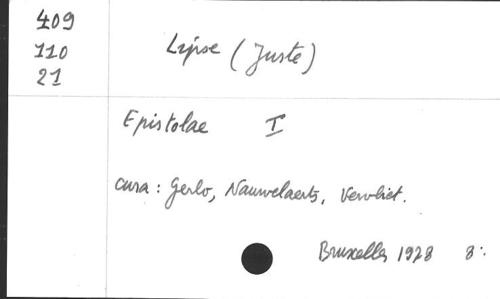 409
110
21
Lipse (Juste)
Epistolae I
cura: Gerlo, Nauwelaerts, Vervliet.
Bruxelles 1978 8: